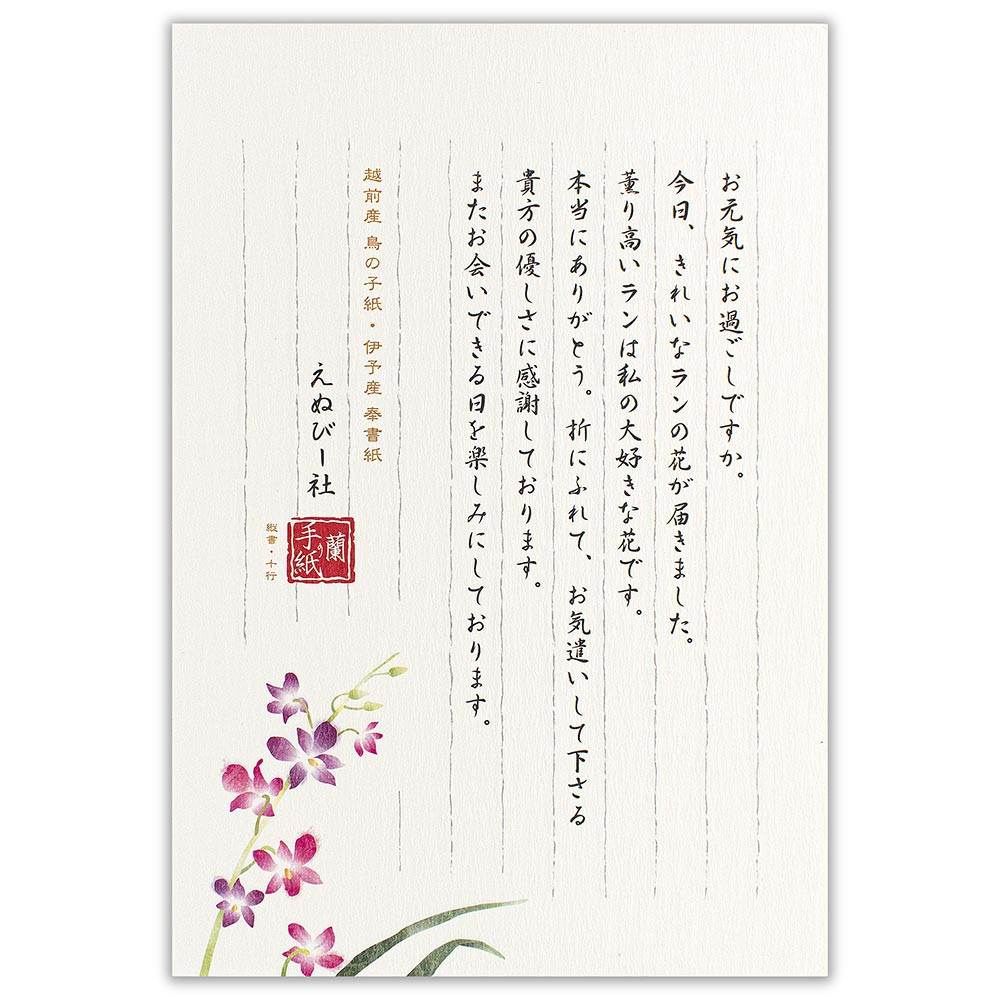 お元気にお過ごしですか。
今日、きれいなランの花が届きました。
薫り高いランは私の大好きな花です。
本当にありがとう。折にふれて、お気遣いして下さる
貴方の優しさに感謝しております。
またお会いできる日を楽しみにしております。
越前産 鳥の子紙・伊予産 奉書紙
えぬびー社
蘭の
手紙
縦書・十行